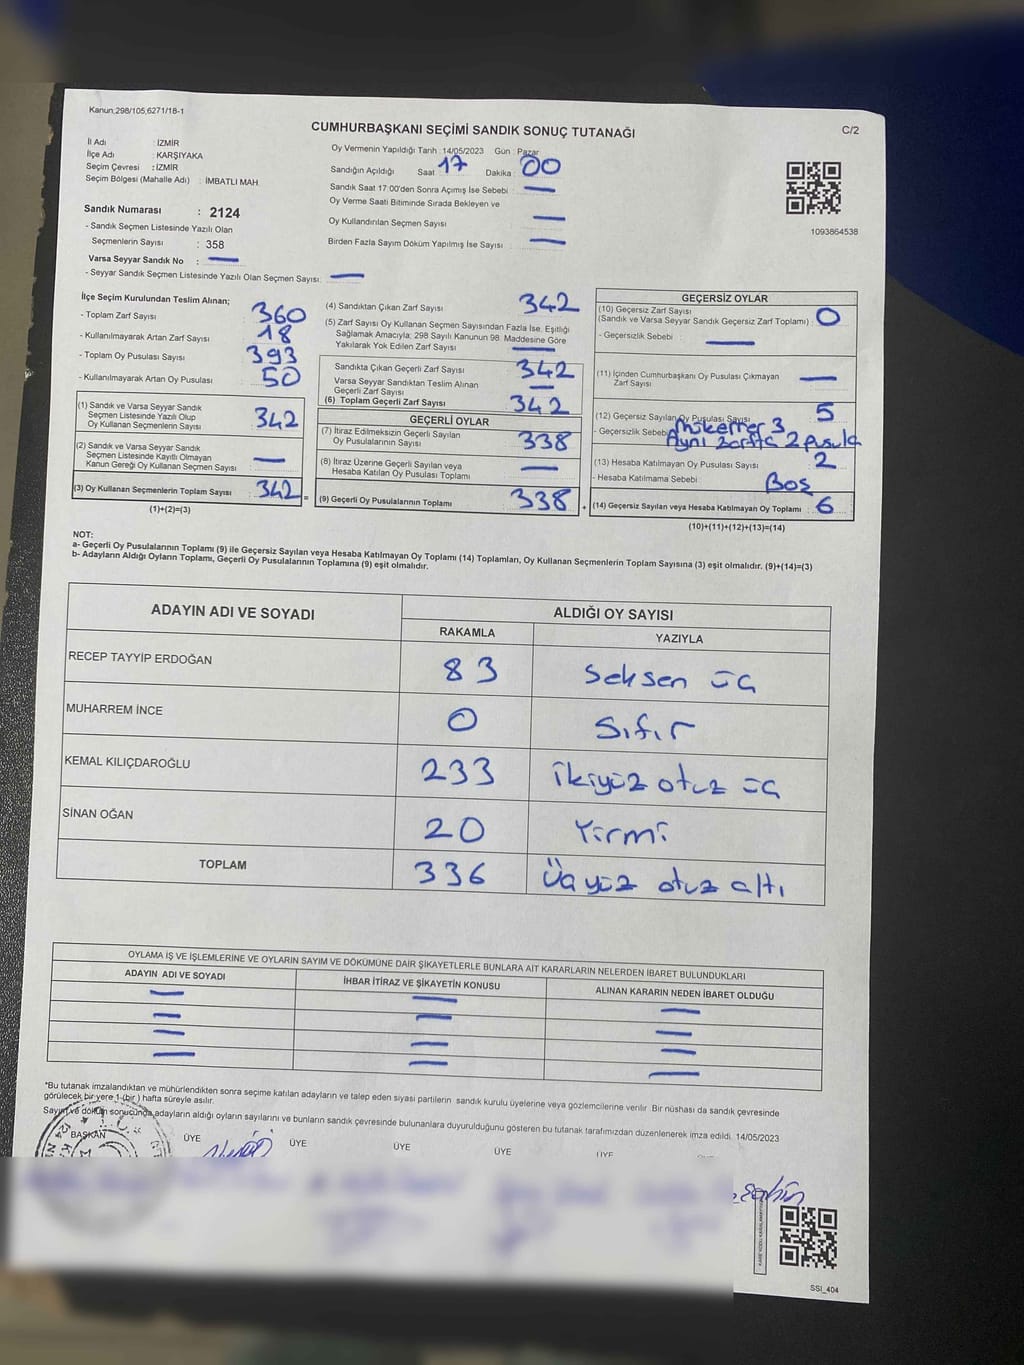 Kanun,298/105,6271/18-1
CUMHURBAŞKANI SEÇİMİ SANDIK SONUÇ TUTANAĞI
C/2
İl Adı : İZMİR
İlçe Adı : KARŞIYAKA
Seçim Çevresi : İZMİR
Seçim Bölgesi (Mahalle Adı) : İMBATLI MAH.
Sandık Numarası : 2124
- Sandık Seçmen Listesinde Yazılı Olan
Seçmenlerin Sayısı : 358
Varsa Seyyar Sandık No : —
- Seyyar Sandık Seçmen Listesinde Yazılı Olan Seçmen Sayısı: —
Oy Vermenin Yapıldığı Tarih :14/05/2023 Gün : Pazar
Sandığın Açıldığı Saat : 17 Dakika : 00
Sandık Saat 17:00'den Sonra Açımış İse Sebebi : —
Oy Verme Saati Bitiminde Sırada Bekleyen ve
Oy Kullandırılan Seçmen Sayısı —
Birden Fazla Sayım Döküm Yapılmış İse Sayısı : —
1093864538
İlçe Seçim Kurulundan Teslim Alınan;
- Toplam Zarf Sayısı : 360
- Kullanılmayarak Artan Zarf Sayısı : 18
- Toplam Oy Pusulası Sayısı : 393
- Kullanılmayarak Artan Oy Pusulası : 50
(1) Sandık ve Varsa Seyyar Sandık
Seçmen Listesinde Yazılı Olup
Oy Kullanan Seçmenlerin Sayısı : 342
(2) Sandık ve Varsa Seyyar Sandık
Seçmen Listesinde Kayıtlı Olmayan
Kanun Gereği Oy Kullanan Seçmen Sayısı : —
(3) Oy Kullanan Seçmenlerin Toplam Sayısı : 342 =
(1)+(2)=(3)
(4) Sandıktan Çıkan Zarf Sayısı : 342
(5) Zarf Sayısı Oy Kullanan Seçmen Sayısından Fazla İse, Eşitliği
Sağlamak Amacıyla; 298 Sayılı Kanunun 98. Maddesine Göre
Yakılarak Yok Edilen Zarf Sayısı : —
Sandıkta Çıkan Geçerli Zarf Sayısı : 342
Varsa Seyyar Sandıktan Teslim Alınan
Geçerli Zarf Sayısı : —
(6) Toplam Geçerli Zarf Sayısı : 342
GEÇERLİ OYLAR
(7) İtiraz Edilmeksizin Geçerli Sayılan
Oy Pusulalarının Sayısı : 338
(8) İtiraz Üzerine Geçerli Sayılan veya
Hesaba Katılan Oy Pusulası Toplamı : —
(9) Geçerli Oy Pusulalarının Toplamı : 338 +
GEÇERSİZ OYLAR
(10) Geçersiz Zarf Sayısı
(Sandık ve Varsa Seyyar Sandık Geçersiz Zarf Toplamı) : 0
- Geçersizlik Sebebi : —
(11) İçinden Cumhurbaşkanı Oy Pusulası Çıkmayan
Zarf Sayısı : —
(12) Geçersiz Sayılan Oy Pusulası Sayısı : 5
- Geçersizlik Sebebi Mükerrer 3
Aynı zarfta 2 pusula
(13) Hesaba Katılmayan Oy Pusulası Sayısı : 2
- Hesaba Katılmama Sebebi : Boş
(14) Geçersiz Sayılan veya Hesaba Katılmayan Oy Toplamı : 6
(10)+(11)+(12)+(13)=(14)
NOT:
a- Geçerli Oy Pusulalarının Toplamı (9) ile Geçersiz Sayılan veya Hesaba Katılmayan Oy Toplamı (14) Toplamları, Oy Kullanan Seçmenlerin Toplam Sayısına (3) eşit olmalıdır. (9)+(14)=(3)
b- Adayların Aldığı Oyların Toplamı, Geçerli Oy Pusulalarının Toplamına (9) eşit olmalıdır.
ADAYIN ADI VE SOYADI ALDIĞI OY SAYISI
RAKAMLA YAZIYLA
RECEP TAYYİP ERDOĞAN 83 Seksen üç
MUHARREM İNCE 0 Sıfır
KEMAL KILIÇDAROĞLU 233 İkiyüz otuz üç
SİNAN OĞAN 20 Yirmi
TOPLAM 336 Üçyüz otuz altı
OYLAMA İŞ VE İŞLEMLERİNE VE OYLARIN SAYIM VE DÖKÜMÜNE DAİR ŞİKAYETLERLE BUNLARA AİT KARARLARIN NELERDEN İBARET BULUNDUKLARI
ADAYIN ADI VE SOYADI İHBAR İTİRAZ VE ŞİKAYETİN KONUSU ALINAN KARARIN NEDEN İBARET OLDUĞU
— — —
— — —
— — —
— — —
*Bu tutanak imzalandıktan ve mühürlendikten sonra seçime katılan adayların ve talep eden siyasi partilerin sandık kurulu üyelerine veya gözlemcilerine verilir. Bir nüshası da sandık çevresinde
görülecek bir yere 1 (bir ) hafta süreyle asılır.
Sayım ve döküm sonucunda adayların aldığı oyların sayılarını ve bunların sandık çevresinde bulunanlara duyurulduğunu gösteren bu tutanak tarafımızdan düzenlenerek imza edildi. 14/05/2023
BAŞKAN ÜYE ÜYE ÜYE ÜYE ÜYE
SSİ_404